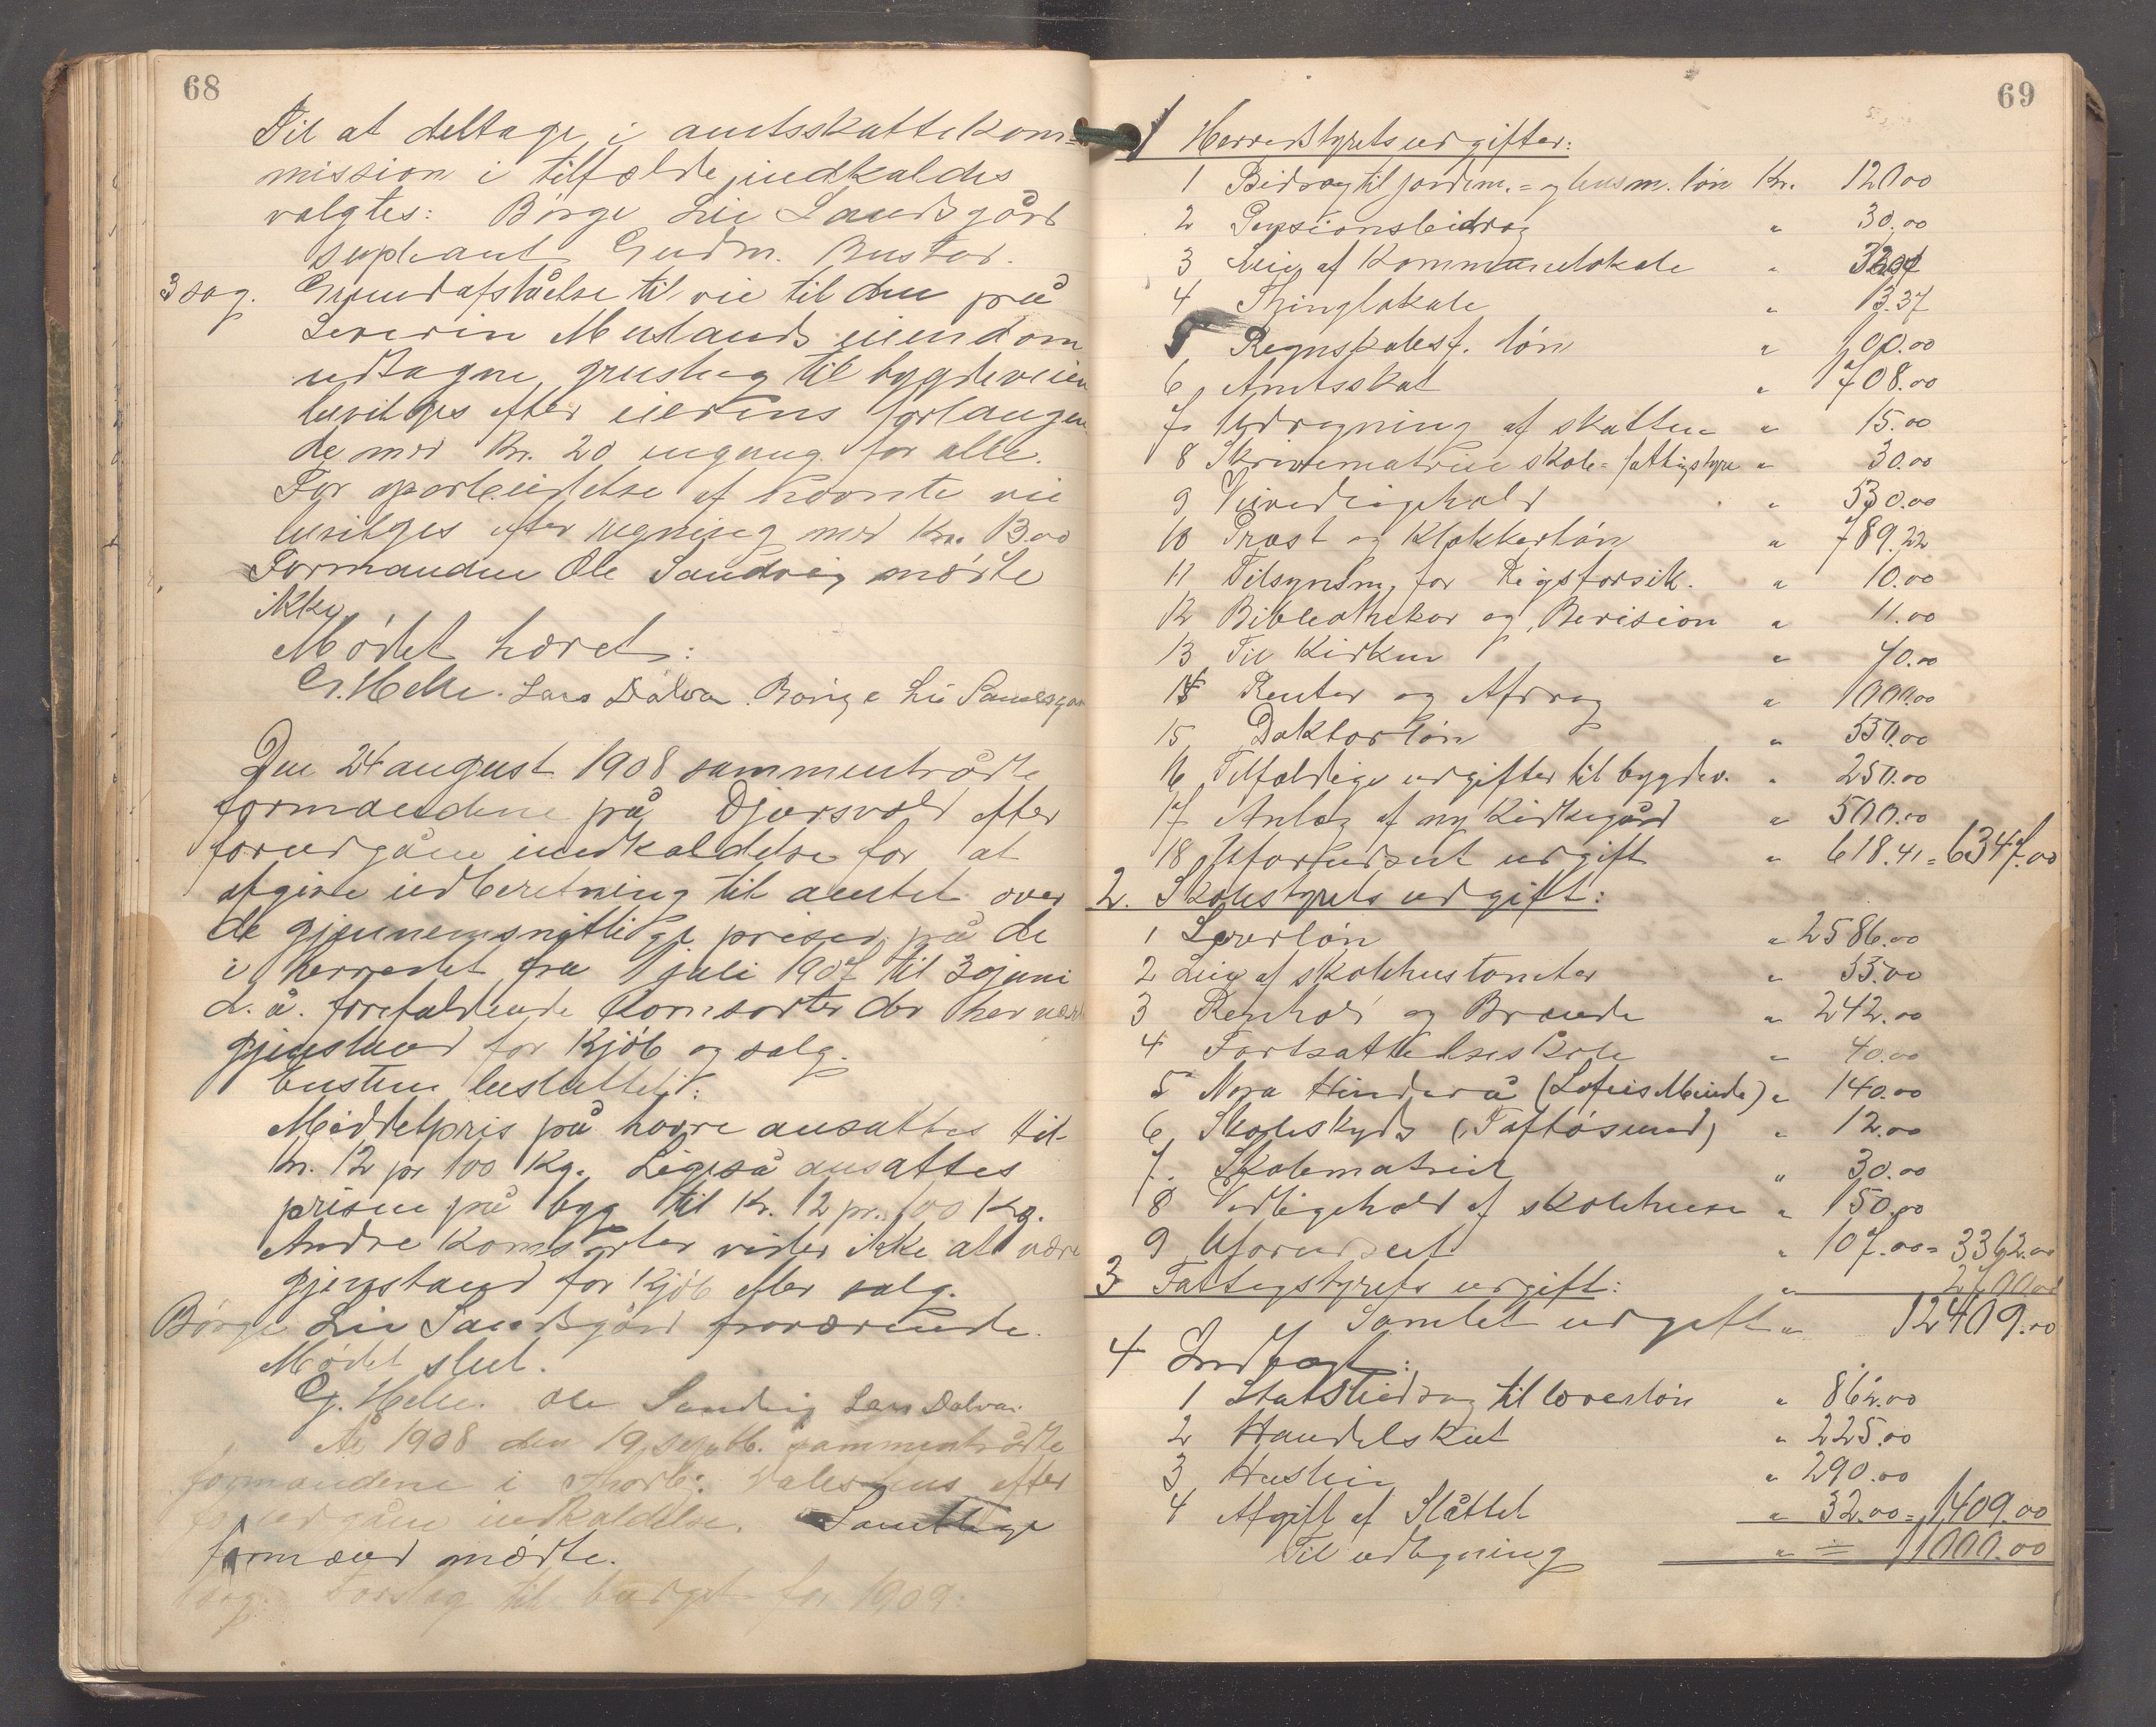 68
Til at deltage i amtsskattekom=
mission i tilfælde indkaldes
valgtes: Børge Lie Sandsgård
supleant Gudm. Bustad.
3 sag. Grundafståelse til vei til den på
Severin Meslands eiendom
udtagne grustag til bygdeveien
bevilges efter eierens forlangen
de med Kr. 20 engang for alle.
For oparbeidelse af nævnte vei
bevilges efter regning med Kr. 13.00
Formanden Ole Sandvig mødte
ikke
Mødet hævet:
G. Helle. Lars Dalva. Børge Lie Sandsgård
Den 24 august 1908 sammentrådte
formændene på Djursvold efter
forudgåen indkaldelse for at
afgive indberetning til amtet over
de gjennemsnitlige priser på de
i herredet fra 1 juli 1907 til 30 juni
d. å. forefaldende kornsorter der her været
gjenstand for kjøb og salg.
Enstem. besluttet:
Middelpris på havre ansattes til
Kr. 12 pr 100 Kg. Ligeså ansattes
prisen på byg til Kr. 12 pr. 100 Kg.
Andre kornsorter vides ikke at være
gjenstand for kjøb eller salg.
Børge Lie Sandsgård fraværende.
Mødet slut.
G. Helle. Ole Sandvig Lars Dalva.
År 1908 den 19 septb. sammentrådte
formændene i Thorb. hus efter
forudgåen indkaldelse. Samtlige
formænd mødte.
sag. Forslag til budget for 1909.
69
1 Herredstyrets udgifter:
1 Bidrag til jordm.= og husm. løn Kr. 120.00
2 Pensionsbidrag " 30.00
3 Leie af Kommunelokale "
4 Thinglokale " 13.37
5 Regnskabsf. løn " 100.00
6 Amtsskat " 1708.00
7 Udregning af skatten " 15.00
8 Skrivematriel skole= fattigstyre " 30.00
9 Veivedligehold " 530.00
10 Præst og Klokkerløn " 789.22
11 Tilsynsm. for Rigsforsik. " 10.00
12 Bibliothekar og Revision " 11.00
13 Til Kirken " 40.00
14 Renter og Afdrag " 1000.00
15 Doktorløn " 550.00
16 Tilfældige udgifter til bygdev. " 250.00
17 Anlæg af ny Kirkegård " 500.00
18 Uforudseet udgift " 618.41 = 6347.00
2. Skolestyrets udgift:
1 Lærerløn " 2586.00
2 Leie af skolehustomter " 55.00
3 Renhold og Brænde " 242.00
4 Fortsættelsesskole " 40.00
5 Nora Hinderå (Minde) " 140.00
6 Skoleskyds (Taftøsund) " 12.00
7. Skolematriel " 30.00
8 Vedligehold af skolehuse " 150.00
9 Uforudseet " 107.00 = 3362.00
3 Fattigstyrets udgift: " 2700.00
Samlet udgift " 12409.00
4 Indtægt:
1 Statsbidrag til lærerløn " 862.00
2 Handelskat " 225.00
3 Husleie " 290.00
4 Afgift af Slåttet " 32.00 = 1409.00
Til udligning " = 11000.00